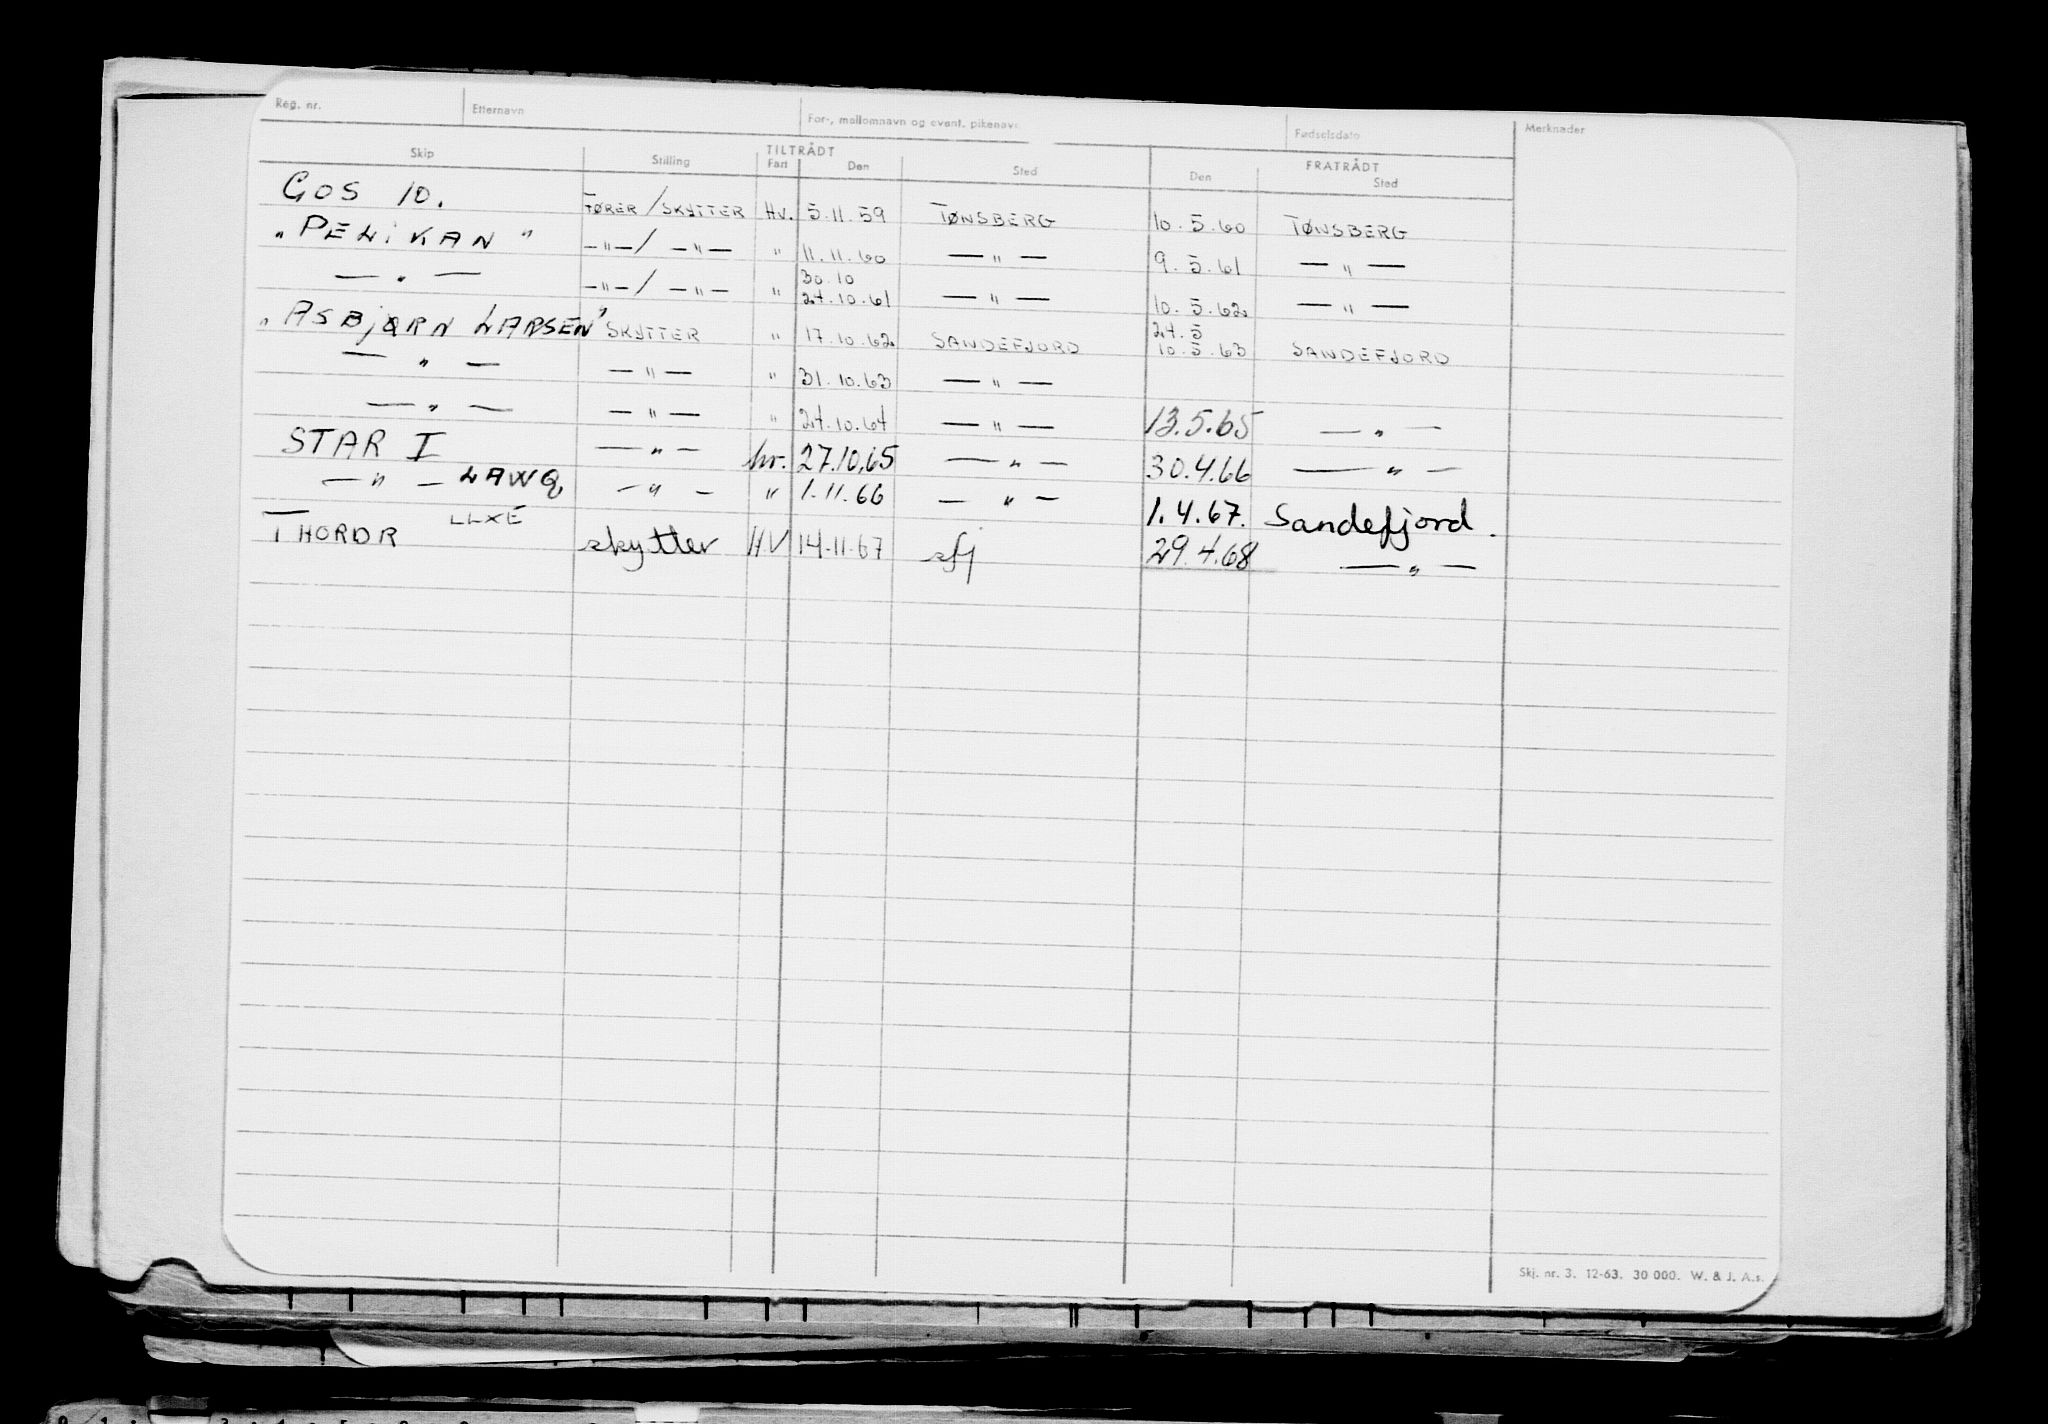 Reg. nr. Etternavn For-, mellomnavn og event. pikenavn Fødselsdato Merknader
TILTRÅDT FRATRÅDT
Skip Stilling Fart Den Sted Den Sted
GOS 10. FØRER/SKYTTER HV. 5.11.59 TØNSBERG 10.5.60 TØNSBERG
"PELIKAN" —"—/ —"— " 11.11.60 — " — 9.5.61 — " —
30.10
— " — —"—/ —"— " 24.10.61 — " — 10.5.62 — " —
24.5
"ASBJØRN LARSEN" SKYTTER " 17.10.62 SANDEFJORD 10.5.63 SANDEFJORD
— " — — " — " 31.10.63 — " —
— " — — " — " 24.10.64 — " — 13.5.65 — " —
STAR I — " — hv. 27.10.65 — " — 30.4.66 — " —
— " — LAWQ — " — " 1.11.66 — " — 1.4.67. Sandefjord.
THORDR LLXE skytter HV 14.11.67 sfj 29.4.68 — " —
Skj. nr. 3. 12-63. 30 000. W. & J. A.s.